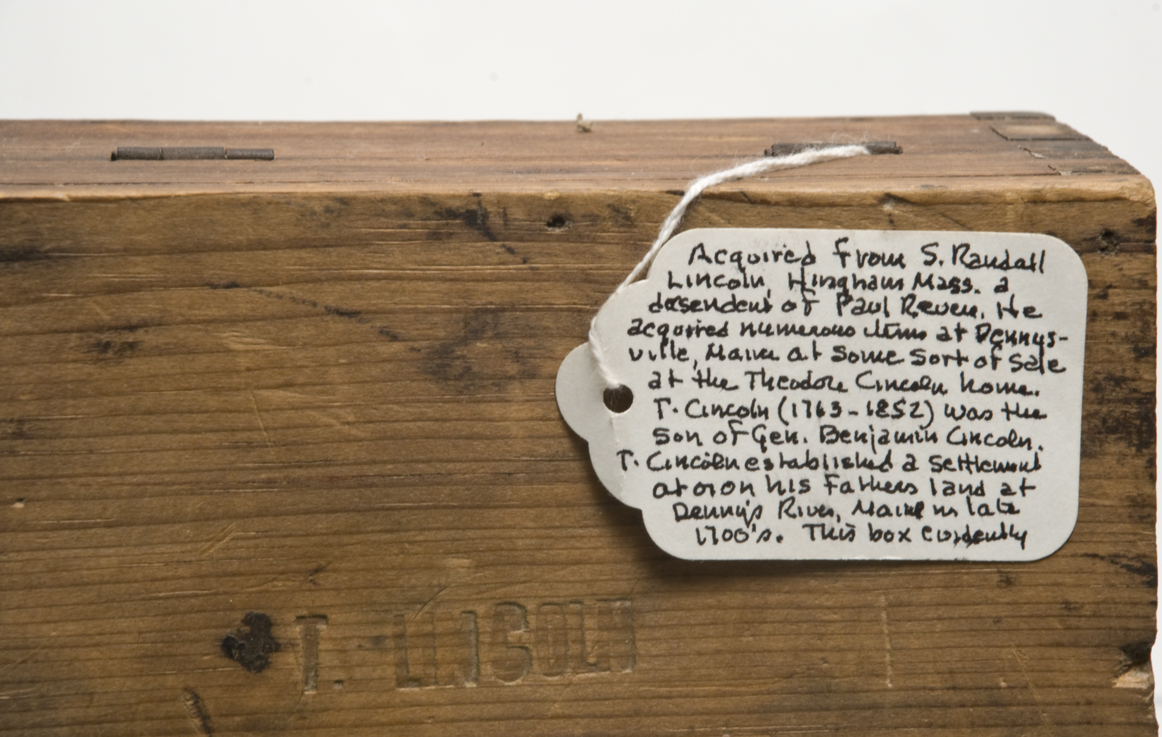 Acquired from S. Randall
Lincoln, Hingham Mass. a
desendent of Paul Revere. He
acquired numerous items at Dennys-
ville, Maine at some sort of sale
at the Theodore Lincoln home.
T. Lincoln (1763-1852) was the
son of Gen. Benjamin Lincoln.
T. Lincoln established a settlement
at or on his Fathers land at
Denny's River, Maine in late
1700's. This box evidently
T. LINCOLN